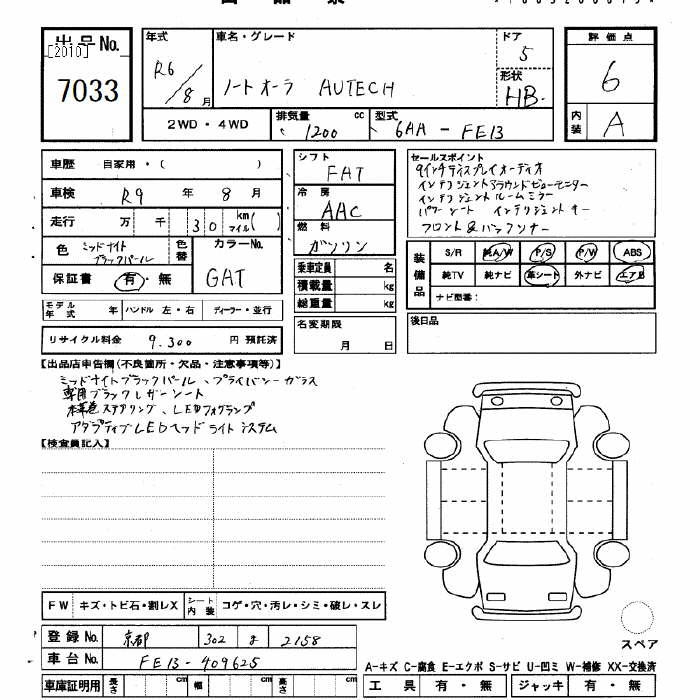 出品No.
[2010]
7033
年式
R6/8月
車名・グレード
ノートオーラ AUTECH
ドア
5
形状
HB.
評価点
6
内装
A
2WD・4WD
排気量 1200 cc
型式 6AA - FE13
車歴 自家用・( )
車検 R9 年 8 月
走行 万 千 30 km マイル( )
色 ミッドナイトブラックパール
色替
カラーNo.
GAT
保証書 有・無
シフト
FAT
冷房
AAC
燃料
ガソリン
乗車定員 名
積載量 kg
総重量 kg
セールスポイント
9インチディスプレイオーディオ
インテリジェントアラウンドビューモニター
インテリジェントルームミラー
パワーシート インテリジェントキー
フロント&バックソナー
装備品
S/R 純A/W P/S P/W ABS
純TV 純ナビ 革シート 外ナビ エアB
ナビ型番:
モデル年式 年 ハンドル 左・右 ディーラー・並行
リサイクル料金 9.300 円 預託済
名変期限
月 日
後日品
【出品店申告欄(不良箇所・欠品・注意事項等)】
ミッドナイトブラックパール、プライバシーガラス
専用ブラックレザーシート
本革巻ステアリング、LEDフォグランプ
アダプティブLEDヘッドライトシステム
【検査員記入】
FW キズ・トビ石・割レX シート内装 コゲ・穴・汚レ・シミ・破レ・スレ
登録No. 京都 302 ま 2158
車台No. FE13-409625
車庫証明用 長さ cm 幅 cm 高さ cm
スペア
A-キズ C-腐食 E-エクボ S-サビ U-凹ミ W-補修 XX-交換済
工具 有・無 ジャッキ 有・無